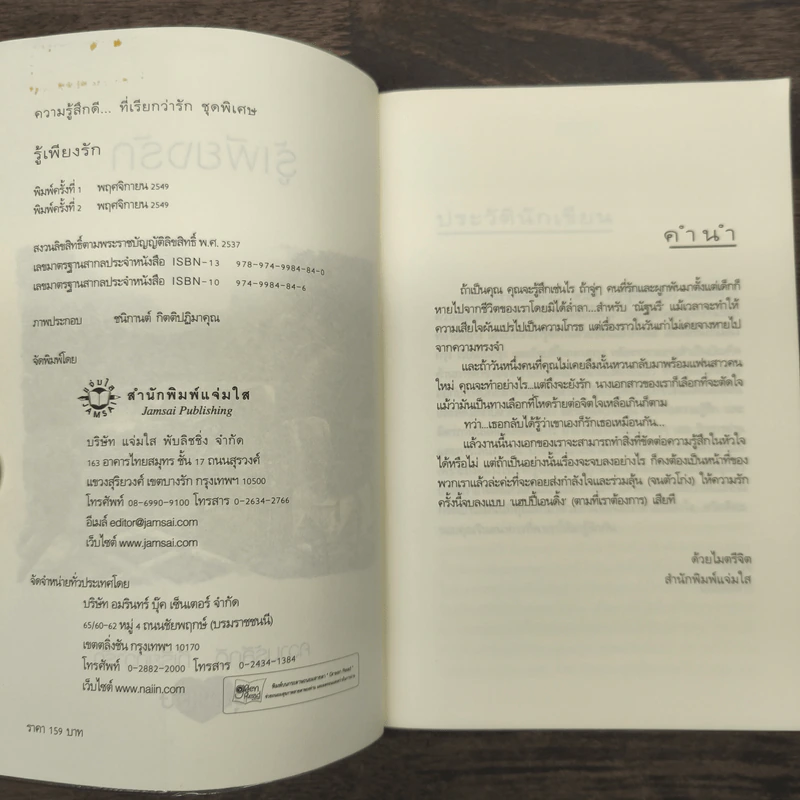 ความรู้สึกดี... ที่เรียกว่ารัก ชุดพิเศษ
รู้เพียงรัก
พิมพ์ครั้งที่ 1 พฤศจิกายน 2549
พิมพ์ครั้งที่ 2 พฤศจิกายน 2549
สงวนลิขสิทธิ์ตามพระราชบัญญัติลิขสิทธิ์ พ.ศ. 2537
เลขมาตรฐานสากลประจำหนังสือ ISBN-13 978-974-9984-84-0
เลขมาตรฐานสากลประจำหนังสือ ISBN-10 974-9984-84-6
ภาพประกอบ ชนิกานต์ กิตติปฏิมาคุณ
จัดพิมพ์โดย
สำนักพิมพ์แจ่มใส
Jamsai Publishing
บริษัท แจ่มใส พับลิชชิ่ง จำกัด
163 อาคารไทยสมุทร ชั้น 17 ถนนสุรวงศ์
แขวงสุริยวงศ์ เขตบางรัก กรุงเทพฯ 10500
โทรศัพท์ 08-6990-9100 โทรสาร 0-2634-2766
อีเมล์ editor@jamsai.com
เว็บไซต์ www.jamsai.com
จัดจำหน่ายทั่วประเทศโดย
บริษัท อมรินทร์ บุ๊ค เซ็นเตอร์ จำกัด
65/60-62 หมู่ 4 ถนนชัยพฤกษ์ (บรมราชชนนี)
เขตตลิ่งชัน กรุงเทพฯ 10170
โทรศัพท์ 0-2882-2000 โทรสาร 0-2434-1384
เว็บไซต์ www.naiin.com
Green Read
ราคา 159 บาท
คำนำ
ถ้าเป็นคุณ คุณจะรู้สึกเช่นไร ถ้าจู่ๆ คนที่รักและผูกพันมาตั้งแต่เด็กก็
หายไปจากชีวิตของเราโดยมิได้ล่ำลา...สำหรับ 'ณัฐนรี' แม้เวลาจะทำให้
ความเสียใจผันแปรไปเป็นความโกรธ แต่เรื่องราวในวันเก่าไม่เคยจางหายไป
จากความทรงจำ
และถ้าวันหนึ่งคนที่คุณไม่เคยลืมนั้นหวนกลับมาพร้อมแฟนสาวคน
ใหม่ คุณจะทำอย่างไร...แต่ถึงจะยังรัก นางเอกสาวของเราก็เลือกที่จะตัดใจ
แม้ว่ามันเป็นทางเลือกที่โหดร้ายต่อจิตใจเหลือเกินก็ตาม
ทว่า...เธอกลับได้รู้ว่าเขาเองก็รักเธอเหมือนกัน...
แล้วงานนี้นางเอกของเราจะสามารถทำสิ่งที่ขัดต่อความรู้สึกในหัวใจ
ได้หรือไม่ แต่ถ้าเป็นอย่างนั้นเรื่องจะจบลงอย่างไร ก็คงต้องเป็นหน้าที่ของ
พวกเราแล้วล่ะค่ะที่จะคอยส่งกำลังใจและร่วมลุ้น (จนตัวโก่ง) ให้ความรัก
ครั้งนี้จบลงแบบ 'แฮปปี้เอนดิ้ง' (ตามที่เราต้องการ) เสียที
ด้วยไมตรีจิต
สำนักพิมพ์แจ่มใส